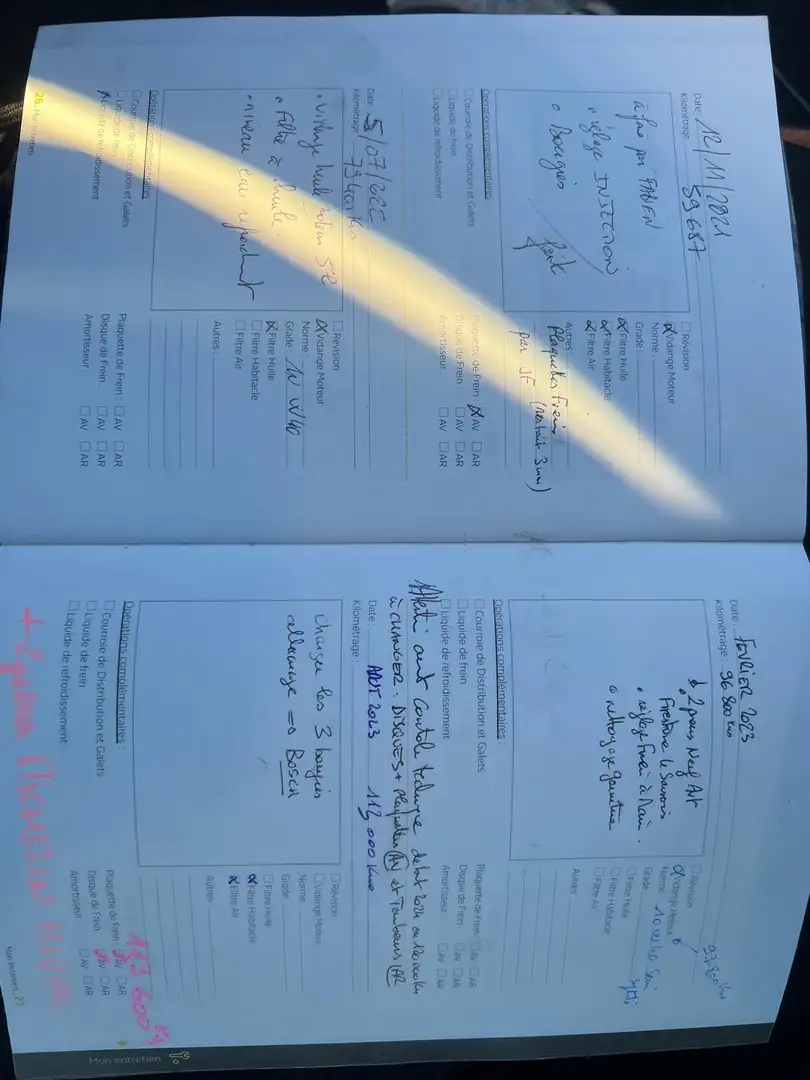 Date : 12/11/2021
Kilométrage : 59 687
à fai par FABIEN
• réglage INJECTION
• Bougies
fait
Opérations complémentaires
☐ Courroie de Distribution et Galets
☐ Liquide de frein
☐ Liquide de refroidissement
☐ Révision
☒ Vidange Moteur
Norme :
Grade :
☒ Filtre Huile
☒ Filtre Habitacle
☒ Filtre Air
Autres
Plaquettes Freins
par JF (restait 3mm)
Plaquette de Frein : ☒ AV ☐ AR
Disque de Frein : ☐ AV ☐ AR
Amortisseur ☐ AV ☐ AR
Date : 5/07/2022
Kilométrage : 79401 Km
• Vidange huile moteur 5L
• Filtre à huile
• niveau eau refroidiss
Opérations complémentaires
☐ Courroie de Distribution et Galets
☐ Liquide de frein
☒ Liquide de refroidissement
☐ Révision
☒ Vidange Moteur
Norme :
Grade : 10 W40
☒ Filtre Huile
☐ Filtre Habitacle
☐ Filtre Air
Autres :
Plaquette de Frein : ☐ AV ☐ AR
Disque de Frein : ☐ AV ☐ AR
Amortisseur ☐ AV ☐ AR
26. Mon entretien
Date : FEVRIER 2023
Kilométrage : 96 800 Km
• 2 pneus Neuf AVT
Firestone 4 Saisons
• réglage frein à main.
• nettoyage garniture
Opérations complémentaires :
☐ Courroie de Distribution et Galets
☐ Liquide de frein
☐ Liquide de refroidissement
☐ Révision
☒ Vidange Moteur
Norme
Grade 10 W40 Semi
☐ Filtre Huile
☐ Filtre Habitacle
☐ Filtre Air
Autres
Plaquette de Frein : ☐ AV ☐ AR
Disque de Frein ☐ AV ☐ AR
Amortisseur ☐ AV ☐ AR
avant contrôle technique début 2024 ou 120 000 km
à CHANGER : DISQUES + Plaquettes AV et Tambours AR
Date : AOUT 2023 113 000 Km
Kilométrage :
changer les 3 bougies
allumage => BOSCH
Opérations complémentaires :
☐ Courroie de Distribution et Galets
☐ Liquide de frein
☐ Liquide de refroidissement
☐ Révision
☐ Vidange Moteur
Norme
Grade
☐ Filtre Huile
☒ Filtre Habitacle
☒ Filtre Air
Autres
113 600 Km
Plaquette de Frein ☒ AV ☐ AR
Disque de Frein ☒ AV ☐ AR
Amortisseur ☐ AV ☐ AR
+ 2 pneus MICHELIN
Mon entretien . 27
Mon entretien